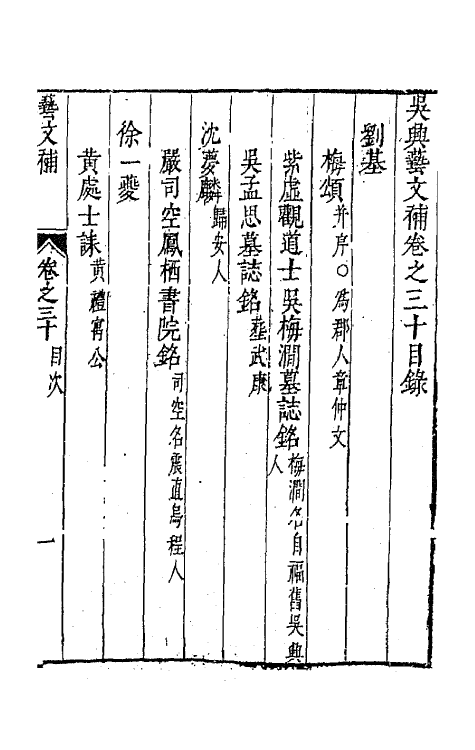 吳興藝文補卷之三十目錄
劉基
梅頌并序○爲郡人章仲文
紫虛觀道士吳梅澗墓誌銘梅澗名自福舊吳興人
吳孟思墓誌銘葬武康
沈夢麟歸安人
嚴司空鳳栖書院銘司空名震直烏程人
徐一夔
黃處士誄黃禮甯公
藝文補 卷之三十 目次 一